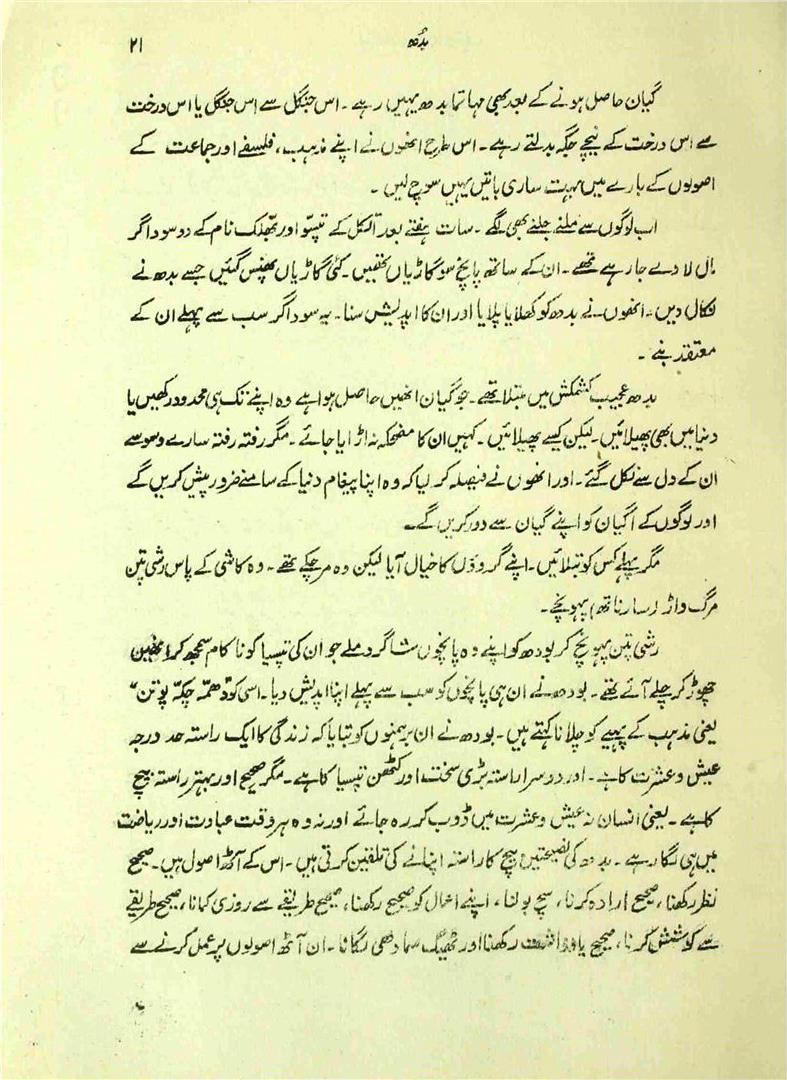 بدھ
۲۱
گیان حاصل ہونے کے بعد بھی مہاتما بدھ یہیں رہے ۔ اس جنگل سے اس جنگل یا اس درخت
سے اس درخت کے نیچے جگہ بدلتے رہے ۔ اس طرح انھوں نے اپنے مذہب ، فلسفے اور جماعت کے
اصولوں کے بارے میں بہت ساری باتیں یہیں سوچ لیں ۔
اب لوگوں سے ملنے جلنے بھی لگے ۔ سات ہفتے بعد اتکل کے تپسّو اور بھلّک نام کے دو سوداگر
مال لادے جا رہے تھے ۔ ان کے ساتھ پانچ سو گاڑیاں تھیں ۔ کئی گاڑیاں پھنس گئیں جسے بدھ نے
نکال دیں ۔ انھوں نے بدھ کو کھلایا پلایا اور ان کا اپدیش سنا ۔ یہ سوداگر سب سے پہلے ان کے
معتقد بنے ۔
بدھ عجیب کشمکش میں مبتلا تھے ۔ جو گیان انھیں حاصل ہوا ہے وہ اپنے تک ہی محدود رکھیں یا
دنیا میں بھی پھیلائیں ۔ لیکن کیسے پھیلائیں ۔ کہیں ان کا مضحکہ نہ اڑایا جائے ۔ مگر رفتہ رفتہ سارے وسوسے
ان کے دل سے نکل گئے ۔ اور انھوں نے فیصلہ کر لیا کہ وہ اپنا پیغام دنیا کے سامنے ضرور پیش کریں گے
اور لوگوں کے اگیان کو اپنے گیان سے دور کریں گے ۔
مگر پہلے کس کو بتلائیں ۔ اپنے گروؤں کا خیال آیا لیکن وہ مر چکے تھے ۔ وہ کاشی کے پاس رشی پتن
مرگ واڑ (سارناتھ) پہونچے ۔
رشی پتن پہونچ کر بودھ کو اپنے وہ پانچوں شاگرد ملے جو ان کی تپسیا کو ناکام سمجھ کر انھیں
چھوڑ کر چلے آئے تھے ۔ بودھ نے ان ہی پانچوں کو سب سے پہلے اپنا اپدیش دیا ۔ اسی کو "دھمّہ چکّہ پوتن"
یعنی مذہب کے پہیے کو چلانا کہتے ہیں ۔ بودھ نے ان برہمنوں کو بتایا کہ زندگی کا ایک راستہ حد درجہ
عیش و عشرت کا ہے ۔ اور دوسرا راستہ بڑی سخت اور کٹھن تپسیا کا ہے ۔ مگر صحیح اور بہتر راستہ بیچ
کا ہے ۔ یعنی انسان نہ عیش و عشرت میں ڈوب کر رہ جائے اور نہ وہ ہر وقت عبادت اور ریاضت
میں ہی لگا رہے ۔ بدھ کی نصیحتیں بیچ کا راستہ اپنانے کی تلقین کرتی ہیں ۔ اس کے آٹھ اصول ہیں ۔ صحیح
نظر رکھنا ، صحیح ارادہ کرنا ، سچ بولنا ، اپنے اعمال کو صحیح رکھنا ، صحیح طریقے سے روزی کمانا ، صحیح طریقے
سے کوشش کرنا ، صحیح یادداشت رکھنا اور ٹھیک سمادھی لگانا ۔ ان آٹھ اصولوں پر عمل کرنے سے